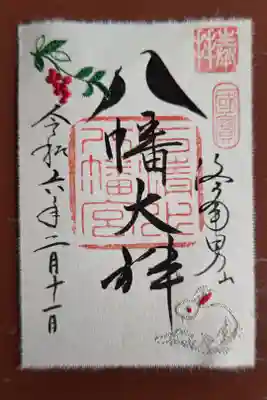 奉拝
國寶
洛南男山
八幡大神
石清水八幡宮
令和六年二月十一日